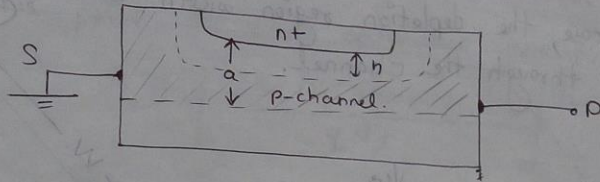 n+
S
a
h
p-channel.
D